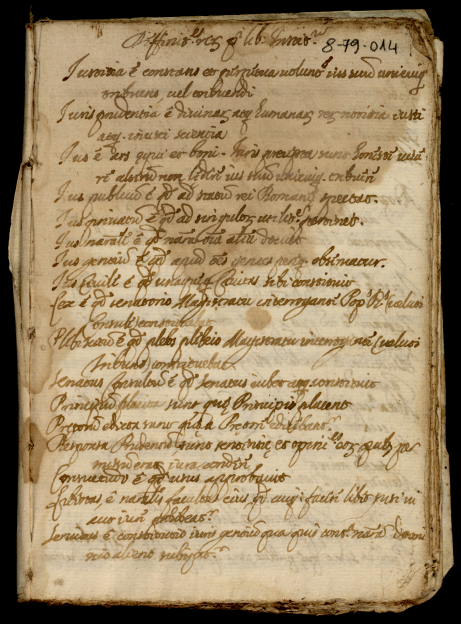 Diffinit.es res p.r lib. Instit.m
8-79-014
Iustitia è constans et perpetua volunt.s ius suum unicuiq
tribuens, vel tribuendi
Iuris prudentia è divinar. atq humanar. res notitia iusti
atq iniusti scientia
Ius è ars equi et boni. Iuris precepta sunt honeste
alterum non ledere ius suum unicuiq
Ius publicum è qd ad statum rei Romane spectat.
Ius privatum è qd ad singulor. pertinet.
Ius natale è qd natura oia alia docuit
Ius gentium è qd apud oes gentes observatur.
Ius civile è qd unaqueq Civitas sibi constituit
Lex è qd senatorio Magistratu interrogante Pop. (veluti
Consule) constituebat
Plebiscitum è qd plebs plebeio Magistratu interrogante (veluti
Tribuno) constituebat
Senatus consultum è qd senatus iubet atq constituit
Principum placita sunt que Principi placent
Pretorum edicta sunt que a Pretore
Responsa Prudentum sunt sententie et opin. eor. quibus per
missum erat iura condere
Consuetudo è qd usus approbavit
Libertas è naturalis facultas eius qd cuiq facere libet nisi vi
aut iure prohibeat.r
Servitus è constitutio iuris gentium qua quis cont. nata domi
nio alieno subijcit.r